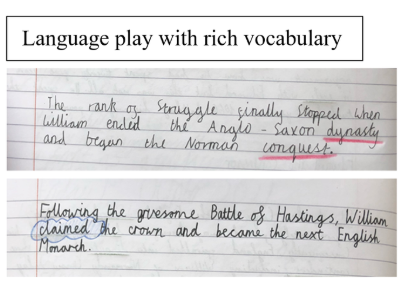 Language play with rich vocabulary
The rank of Struggle finally Stopped when
William ended the Anglo-Saxon dynasty
and began the Norman conquest.
Following the gruesome Battle of Hastings, William
claimed the crown and became the next English
Monarch.